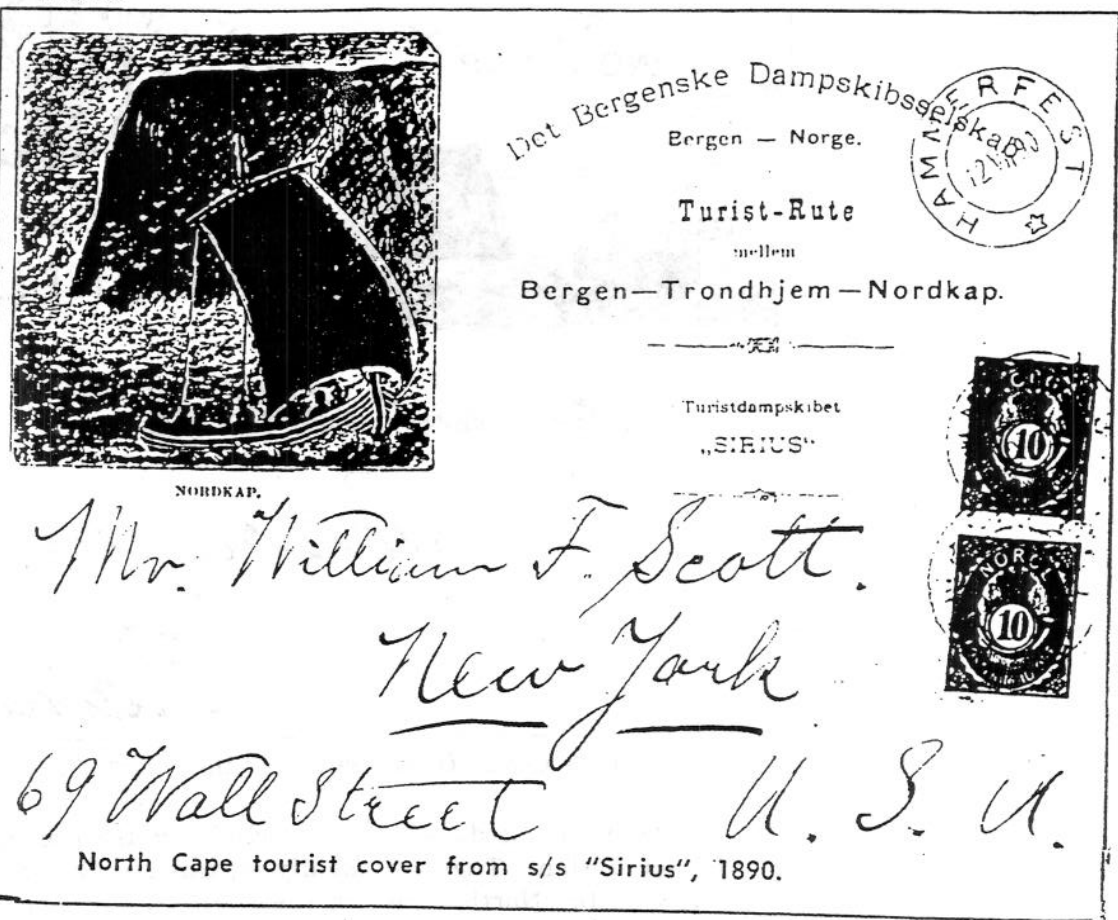 Det Bergenske Dampskibsselskab
Bergen — Norge.
HAMMERFEST
Turist-Rute
mellem
Bergen—Trondhjem—Nordkap.
Turistdampskibet
„SIRIUS“
NORDKAP.
10
NORGE
10
Mr. William F. Scott.
New York
69 Wall Street U. S. A.
North Cape tourist cover from s/s "Sirius", 1890.